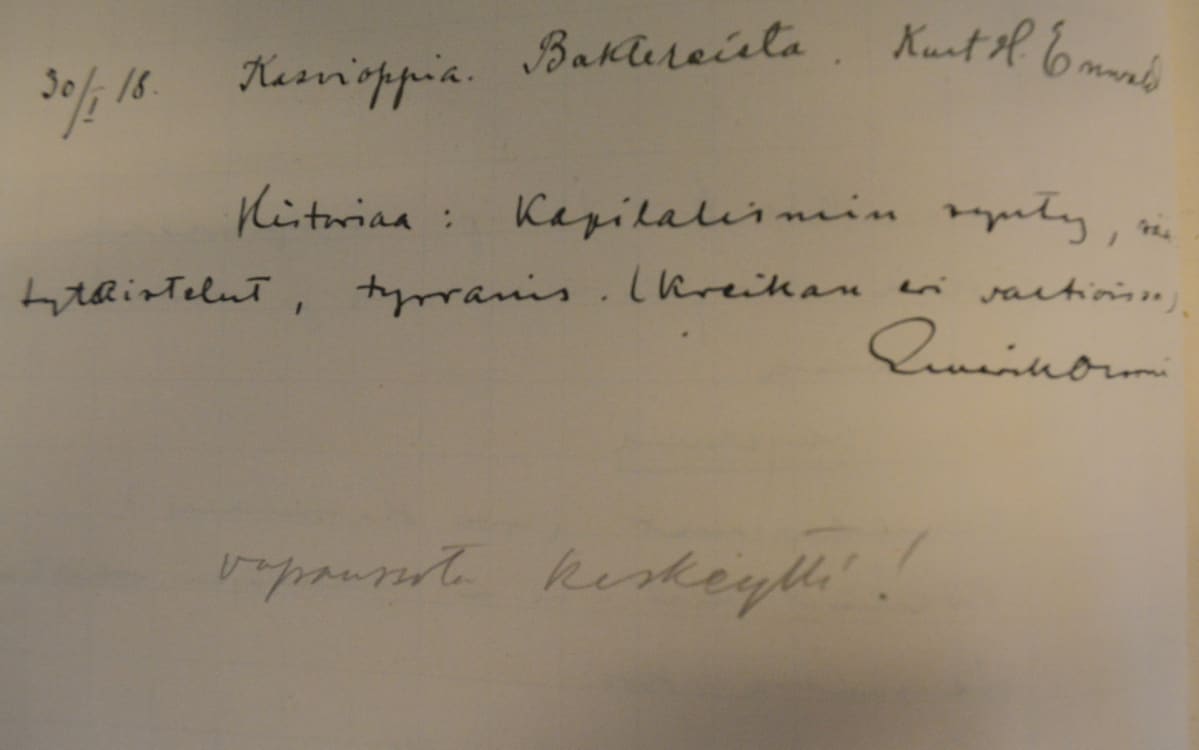 30/I 18. Kasvioppia. Baktereista. Kurt H. Enwald
Historiaa: Kapitalismin synty,
tytaistelut, tyrannis. (Kreikan eri valtioissa)
vapaussota keskeytti!